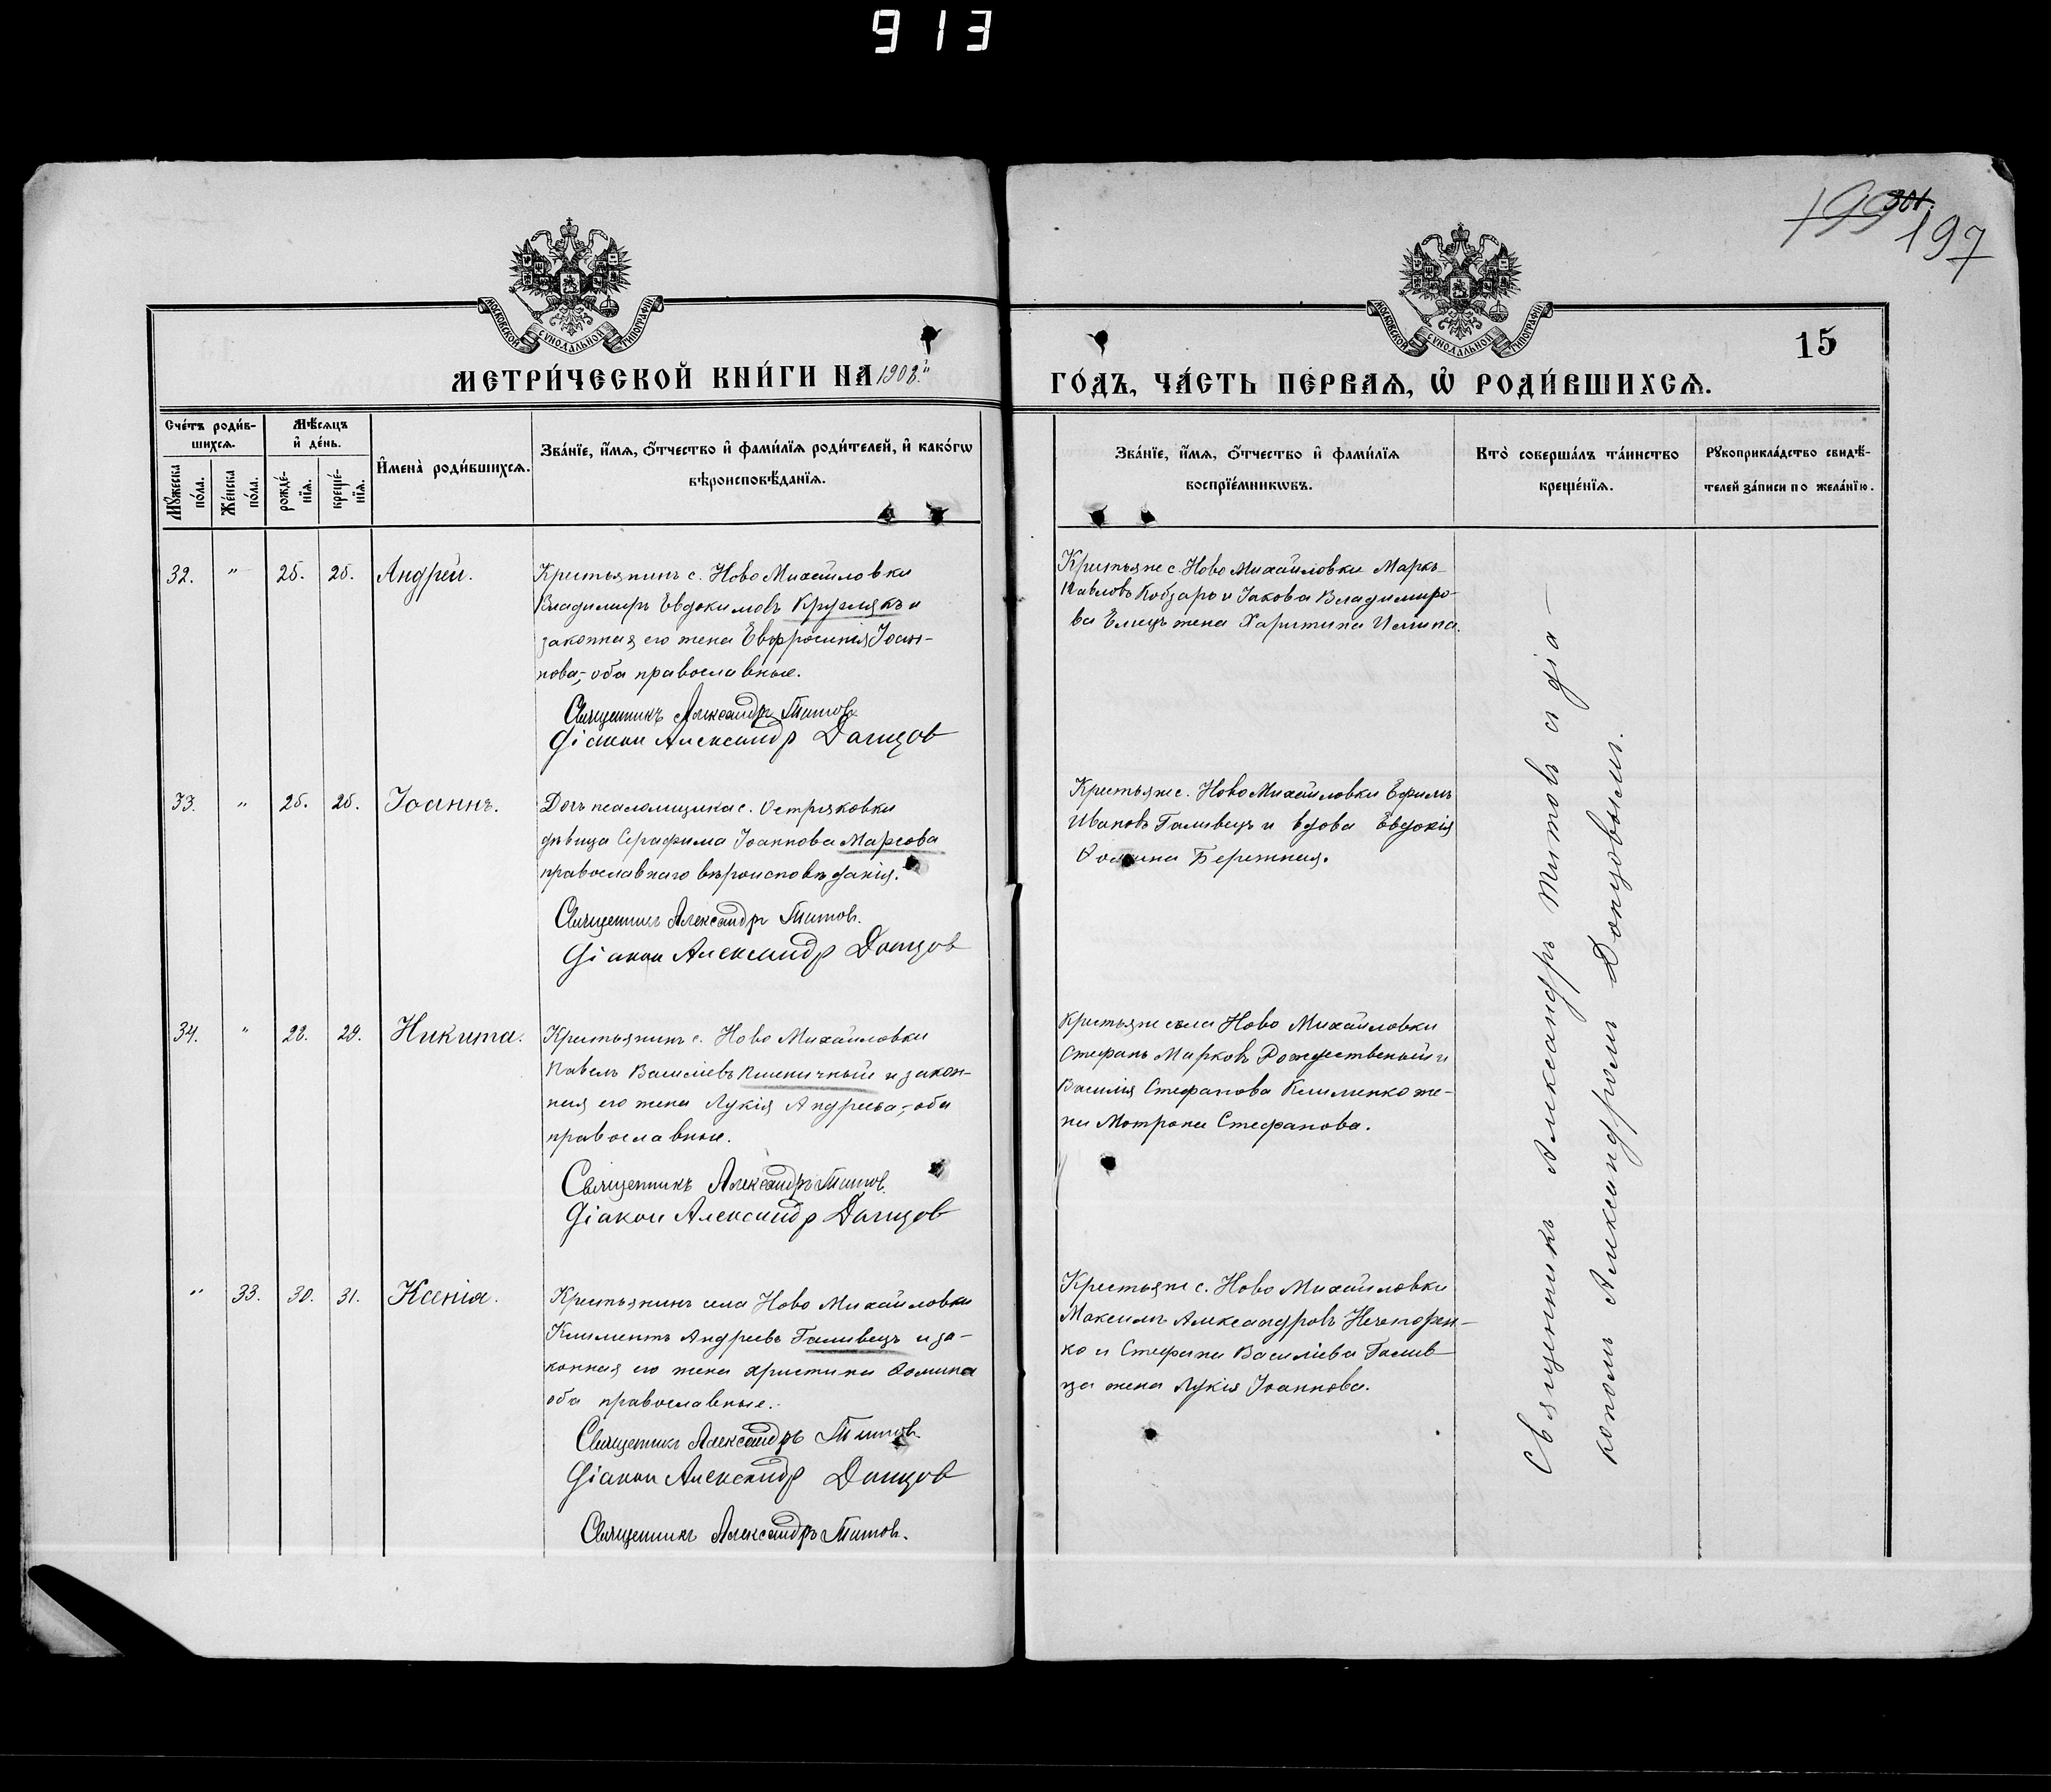 913
199 301.
197
МОСКОВСКОЙ СѴНОДАЛЬНОЙ ТИПОГРАФІИ
МОСКОВСКОЙ СѴНОДАЛЬНОЙ ТИПОГРАФІИ
15
МЕТРИ́ЧЕСКОЙ КНИ́ГИ НА 1908й
ГО́ДЪ, ЧА́СТЬ ПЕ́РВАѦ, Ѡ҆ РОДИ́ВШИХСѦ.
Сче́тъ роди́в-
шихсѧ.
Мѣ́сѧцъ
и҆ де́нь.
Мꙋ́жеска
по́ла.
Же́нска
по́ла.
рожде́-
нїѧ.
креще́-
нїѧ.
И҆мена̀ роди́вшихсѧ.
Зва́нїе, и҆́мѧ, ѻ҆́тчество и҆ фами́лїѧ роди́телей, и҆ како́гѡ
вѣроисповѣ́данїѧ.
Зва́нїе, и҆́мѧ, ѻ҆́тчество и҆ фами́лїѧ
воспрїе́мникѡвъ.
Кто̀ соверша́лъ та́инство
креще́нїѧ.
Рꙋкоприкла́дство свидѣ́-
телей за́писи по жела́нїю.
32. " 25. 25. Андрей.
Крестьянинъ с. Ново Михайловки
Владимиръ Евдокимовъ Круглякъ и
законная его жена Евфросинія Іоан-
нова,- оба православные.
Священникъ Александръ Титовъ
Діакон Александр Донцов
Крестьяне с. Ново Михайловки Маркъ
Павловъ Кобзарь и Іакова Владимиро-
ва Елецъ жена Харитина Ильина.
33. " 25. 25. Іоаннъ.
Дочь псаломщика с. Остряковки
дѣвица Серафима Іоаннова Марсова
православнаго вѣроисповѣданія.
Священникъ Александръ Титовъ.
Діакон Александр Донцов
Крестьяне с. Ново Михайловки Ефимъ
Ивановъ Галивецъ и вдова Евдокія
Ѳомина Бережная.
34. " 28. 29. Никита.
Крестьянинъ с. Ново Михайловки
Павелъ Василіевъ Пшеничный и закон-
ная его жена Лукія Андреева,- оба
православные.
Священникъ Александръ Титовъ.
Діакон Александр Донцов
Крестьяне села Ново Михайловки
Стефанъ Марковъ Рождественый и
Василія Стефанова Клименко же-
на Мотрона Стефанова.
" 33. 30. 31. Ксенія.
Крестьянинъ села Ново Михайловки
Климентъ Андреевъ Галивецъ и за-
конная его жена Христина Ѳомина
оба православные.
Священникъ Александръ Титовъ.
Діакон Александр Донцов
Священникъ Александръ Титовъ.
Крестьяне с. Ново Михайловки
Максимъ Александровъ Нечепорен-
ко и Стефана Василіева Галив-
ца жена Лукія Іоаннова.
Священникъ Александръ Титовъ с діа-
кономъ Александромъ Донцовымъ.